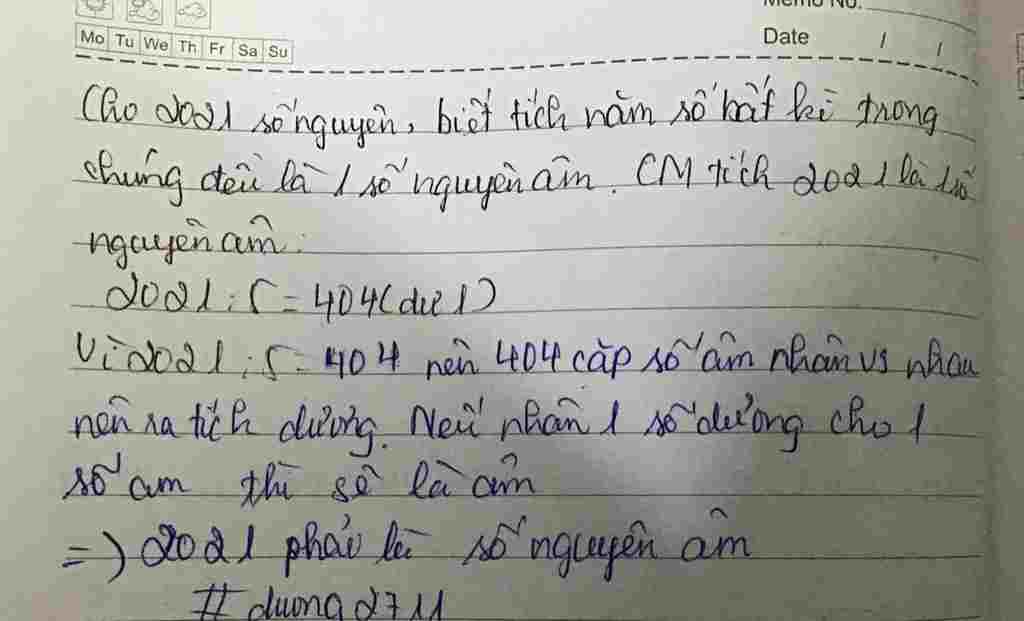 Memo No.
Mo Tu We Th Fr Sa Su
Date / /
Cho 2021 số nguyên, biết tích năm số bất kì trong
chúng đều là 1 số nguyên âm. CM tích 2021 là 1 số
nguyên âm.
2021 : 5 = 404 (dư 1)
Vì 2021 : 5 = 404 nên 404 cặp số âm nhân vs nhau
nên ra tích dương. Nếu nhân 1 số dương cho 1
số am thì sẽ là âm
=) 2021 phải là số nguyên âm
# duong2711